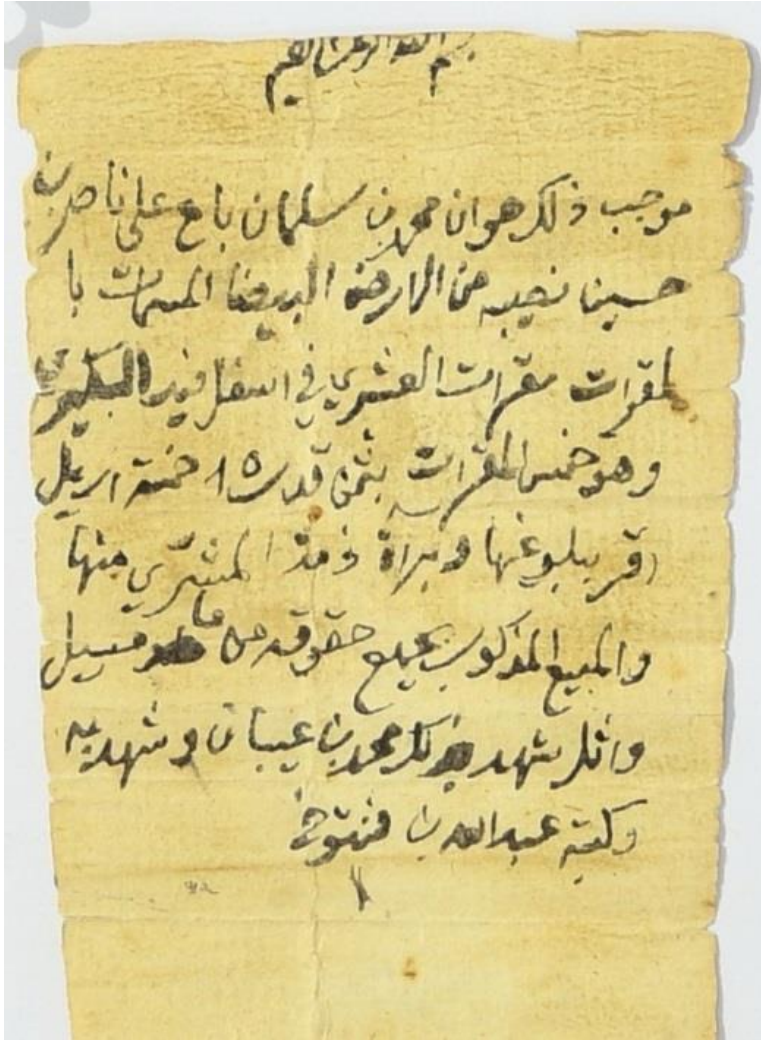 بسم الله الرحمن الرحيم
موجب ذلكر هو ان محمد بن سلمان باع على ناصر بن
حسين نصيبه من الارض البيضا المسمات با
لمقرات مقرات العشري في اسفل فيد
وهو خمس المقرات بثمن قدره ٥ خمسة اريل
اقر ببلوغها وبراة ذمة المشتري منها
والمبيع المذكور بجميع حقوقه من ما ومسيل
واثل شهد بذلك محمد بن عيبان وشهد به
وكتبه عبدالله بن فنتوخ